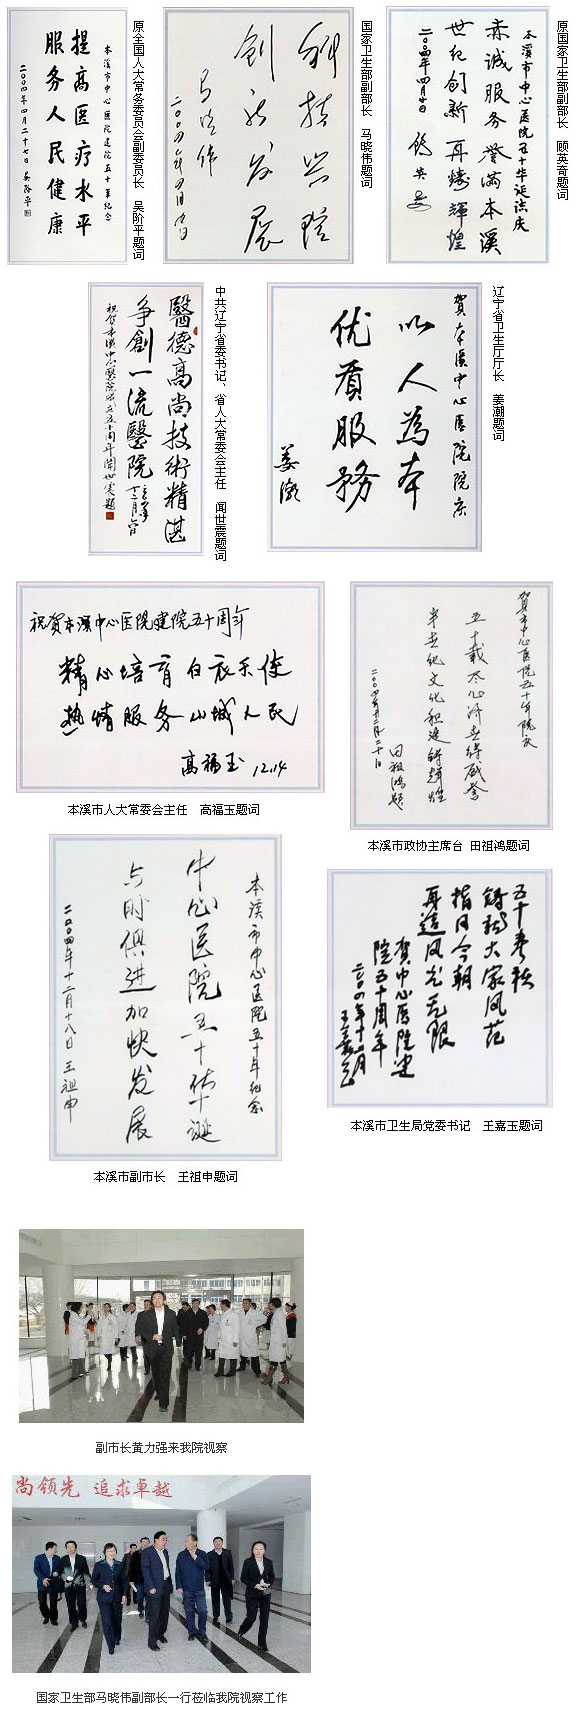 提高医疗水平
服务人民健康
本溪市中心医院建院五十年纪念
二〇〇四年四月二十七日 吴阶平
原全国人大常务委员会副委员长　吴阶平题词
科技兴院
创新发展
马晓伟
国家卫生部副部长　马晓伟题词
本溪市中心医院五十华诞志庆
赤诚服务誉满本溪
世纪创新再铸輝煌
原国家卫生部副部长　顾英奇题词
醫德高尚技術精湛
争創一流醫院
祝贺本溪中心醫院成立五十周年聞世震題
中共辽宁省委书记、省人大常委会主任　闻世震题词
贺本溪中心医院院庆
以人為本
优质服務
姜潮
辽宁省卫生厅厅长　姜潮题词
祝贺本溪中心医院建院五十周年
精心培育白衣天使
热情服务山城人民
高福玉 12.14
本溪市人大常委会主任　高福玉题词
贺市中心医院五十年院庆
五十载尽心济世得盛誉
半世纪文化积淀铸辉煌
二〇〇四年十二月二十日
田祖鸿题
本溪市政协主席台 田祖鸿题词
本溪市中心医院五十年纪念
中心医院五十华诞
与时俱进加快发展
二〇〇四年十二月十八日 王祖申
本溪市副市长　王祖申题词
五十春秋
铸就大家风范
指日今朝
再造风光无限
贺中心医院建
院五十周年
二〇〇四年十二月
王嘉玉
本溪市卫生局党委书记　王嘉玉题词
副市长黄力强来我院视察
尚领先 追求卓越
国家卫生部马晓伟副部长一行莅临我院视察工作